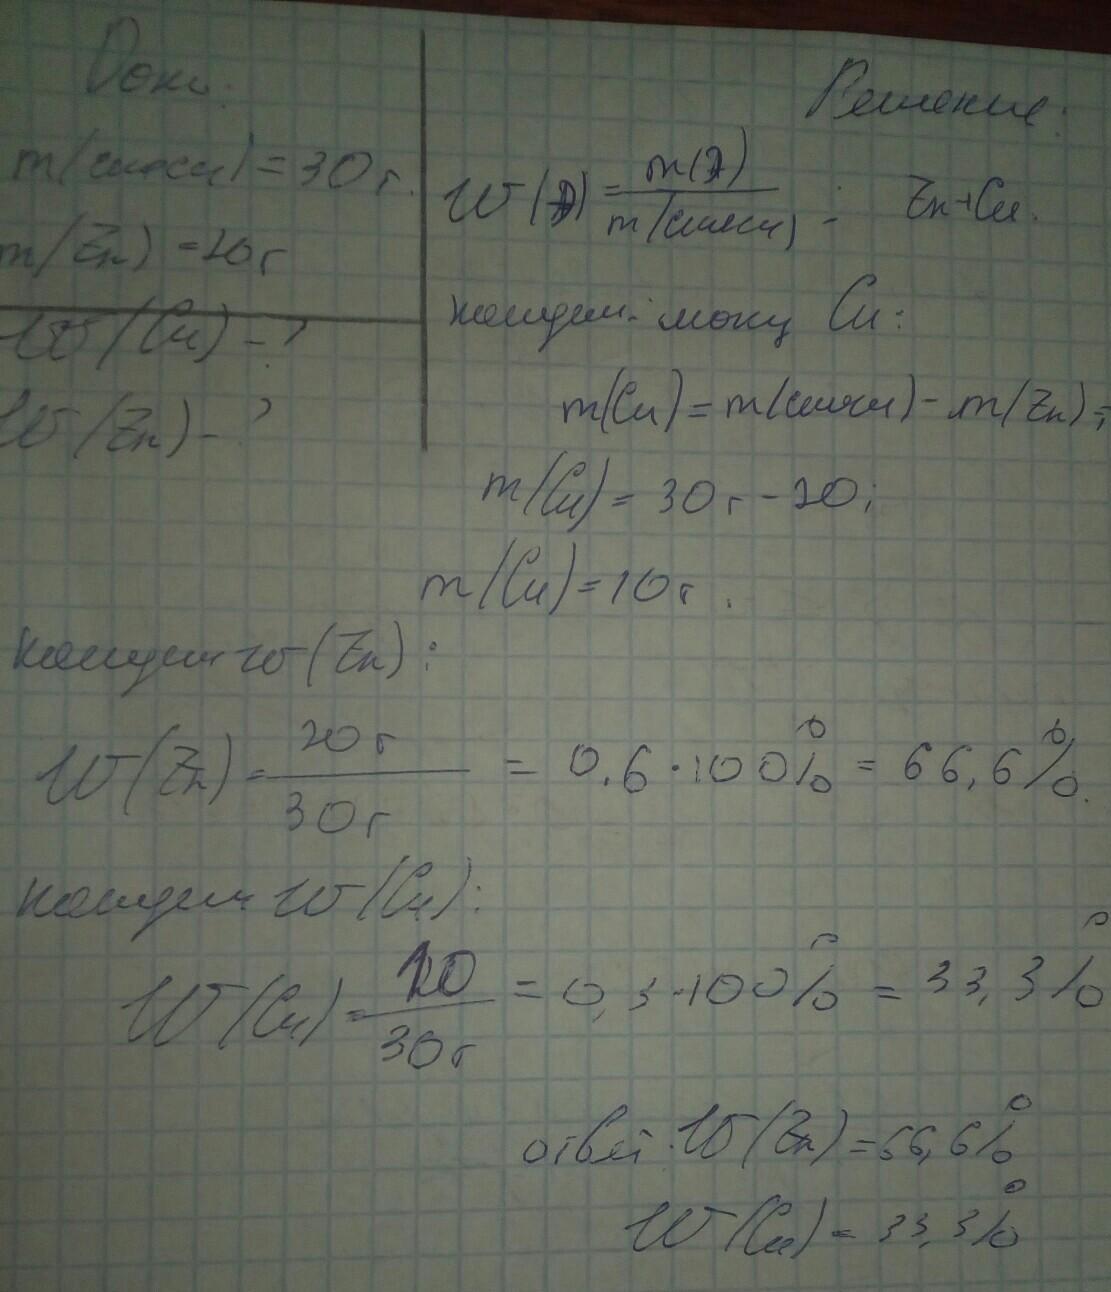 Дано:
m(смеси) = 30 г.
m(Zn) = 20 г
W(Cu) - ?
W(Zn) - ?
Решение:
W(Э) = m(Э) / m(смеси) ; Zn+Cu.
находим массу Cu:
m(Cu) = m(смеси) - m(Zn);
m(Cu) = 30 г - 20;
m(Cu) = 10 г.
находим w(Zn):
W(Zn) = 20 г / 30 г = 0.6 · 100% = 66,6%.
находим w(Cu):
W(Cu) = 10 / 30 г = 0,3 · 100% = 33,3%
ответ: W(Zn) = 66,6%
W(Cu) = 33,3%